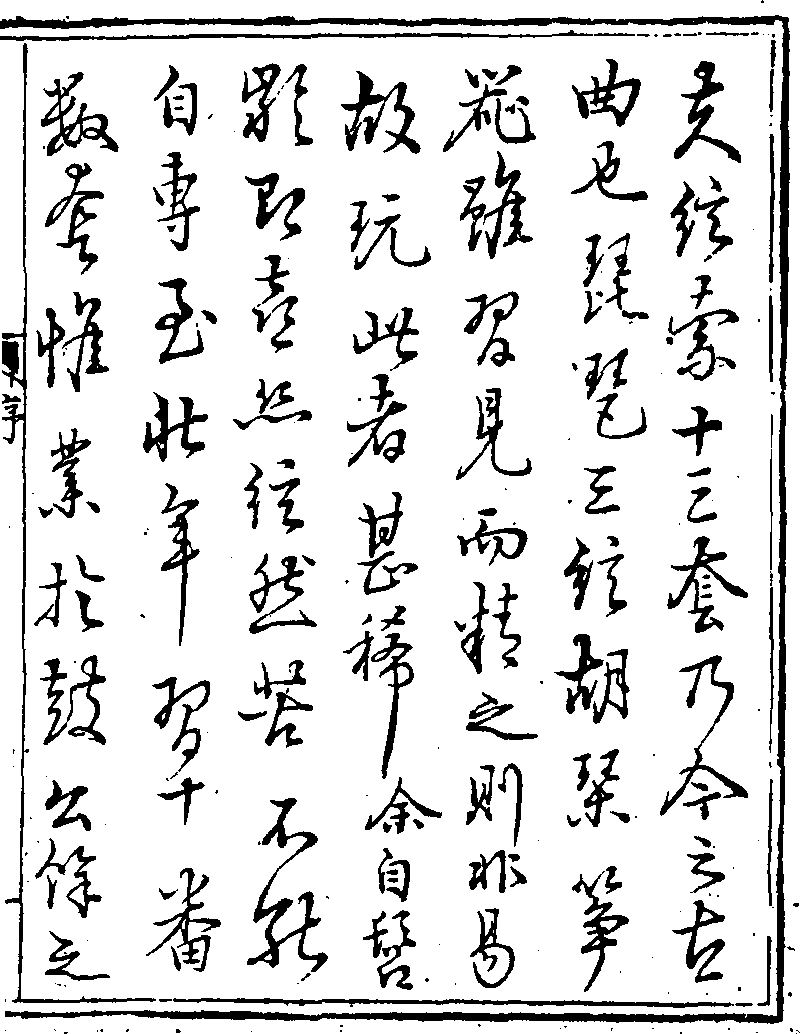 夫絃索十三套乃今之古
曲也琵琶三絃胡琴箏
器雖習見而精之則非易
故玩此者甚稀余自髫
齡即喜丝絃然苦不能
自專至壯年習十番
數套惟業於鼓公餘之